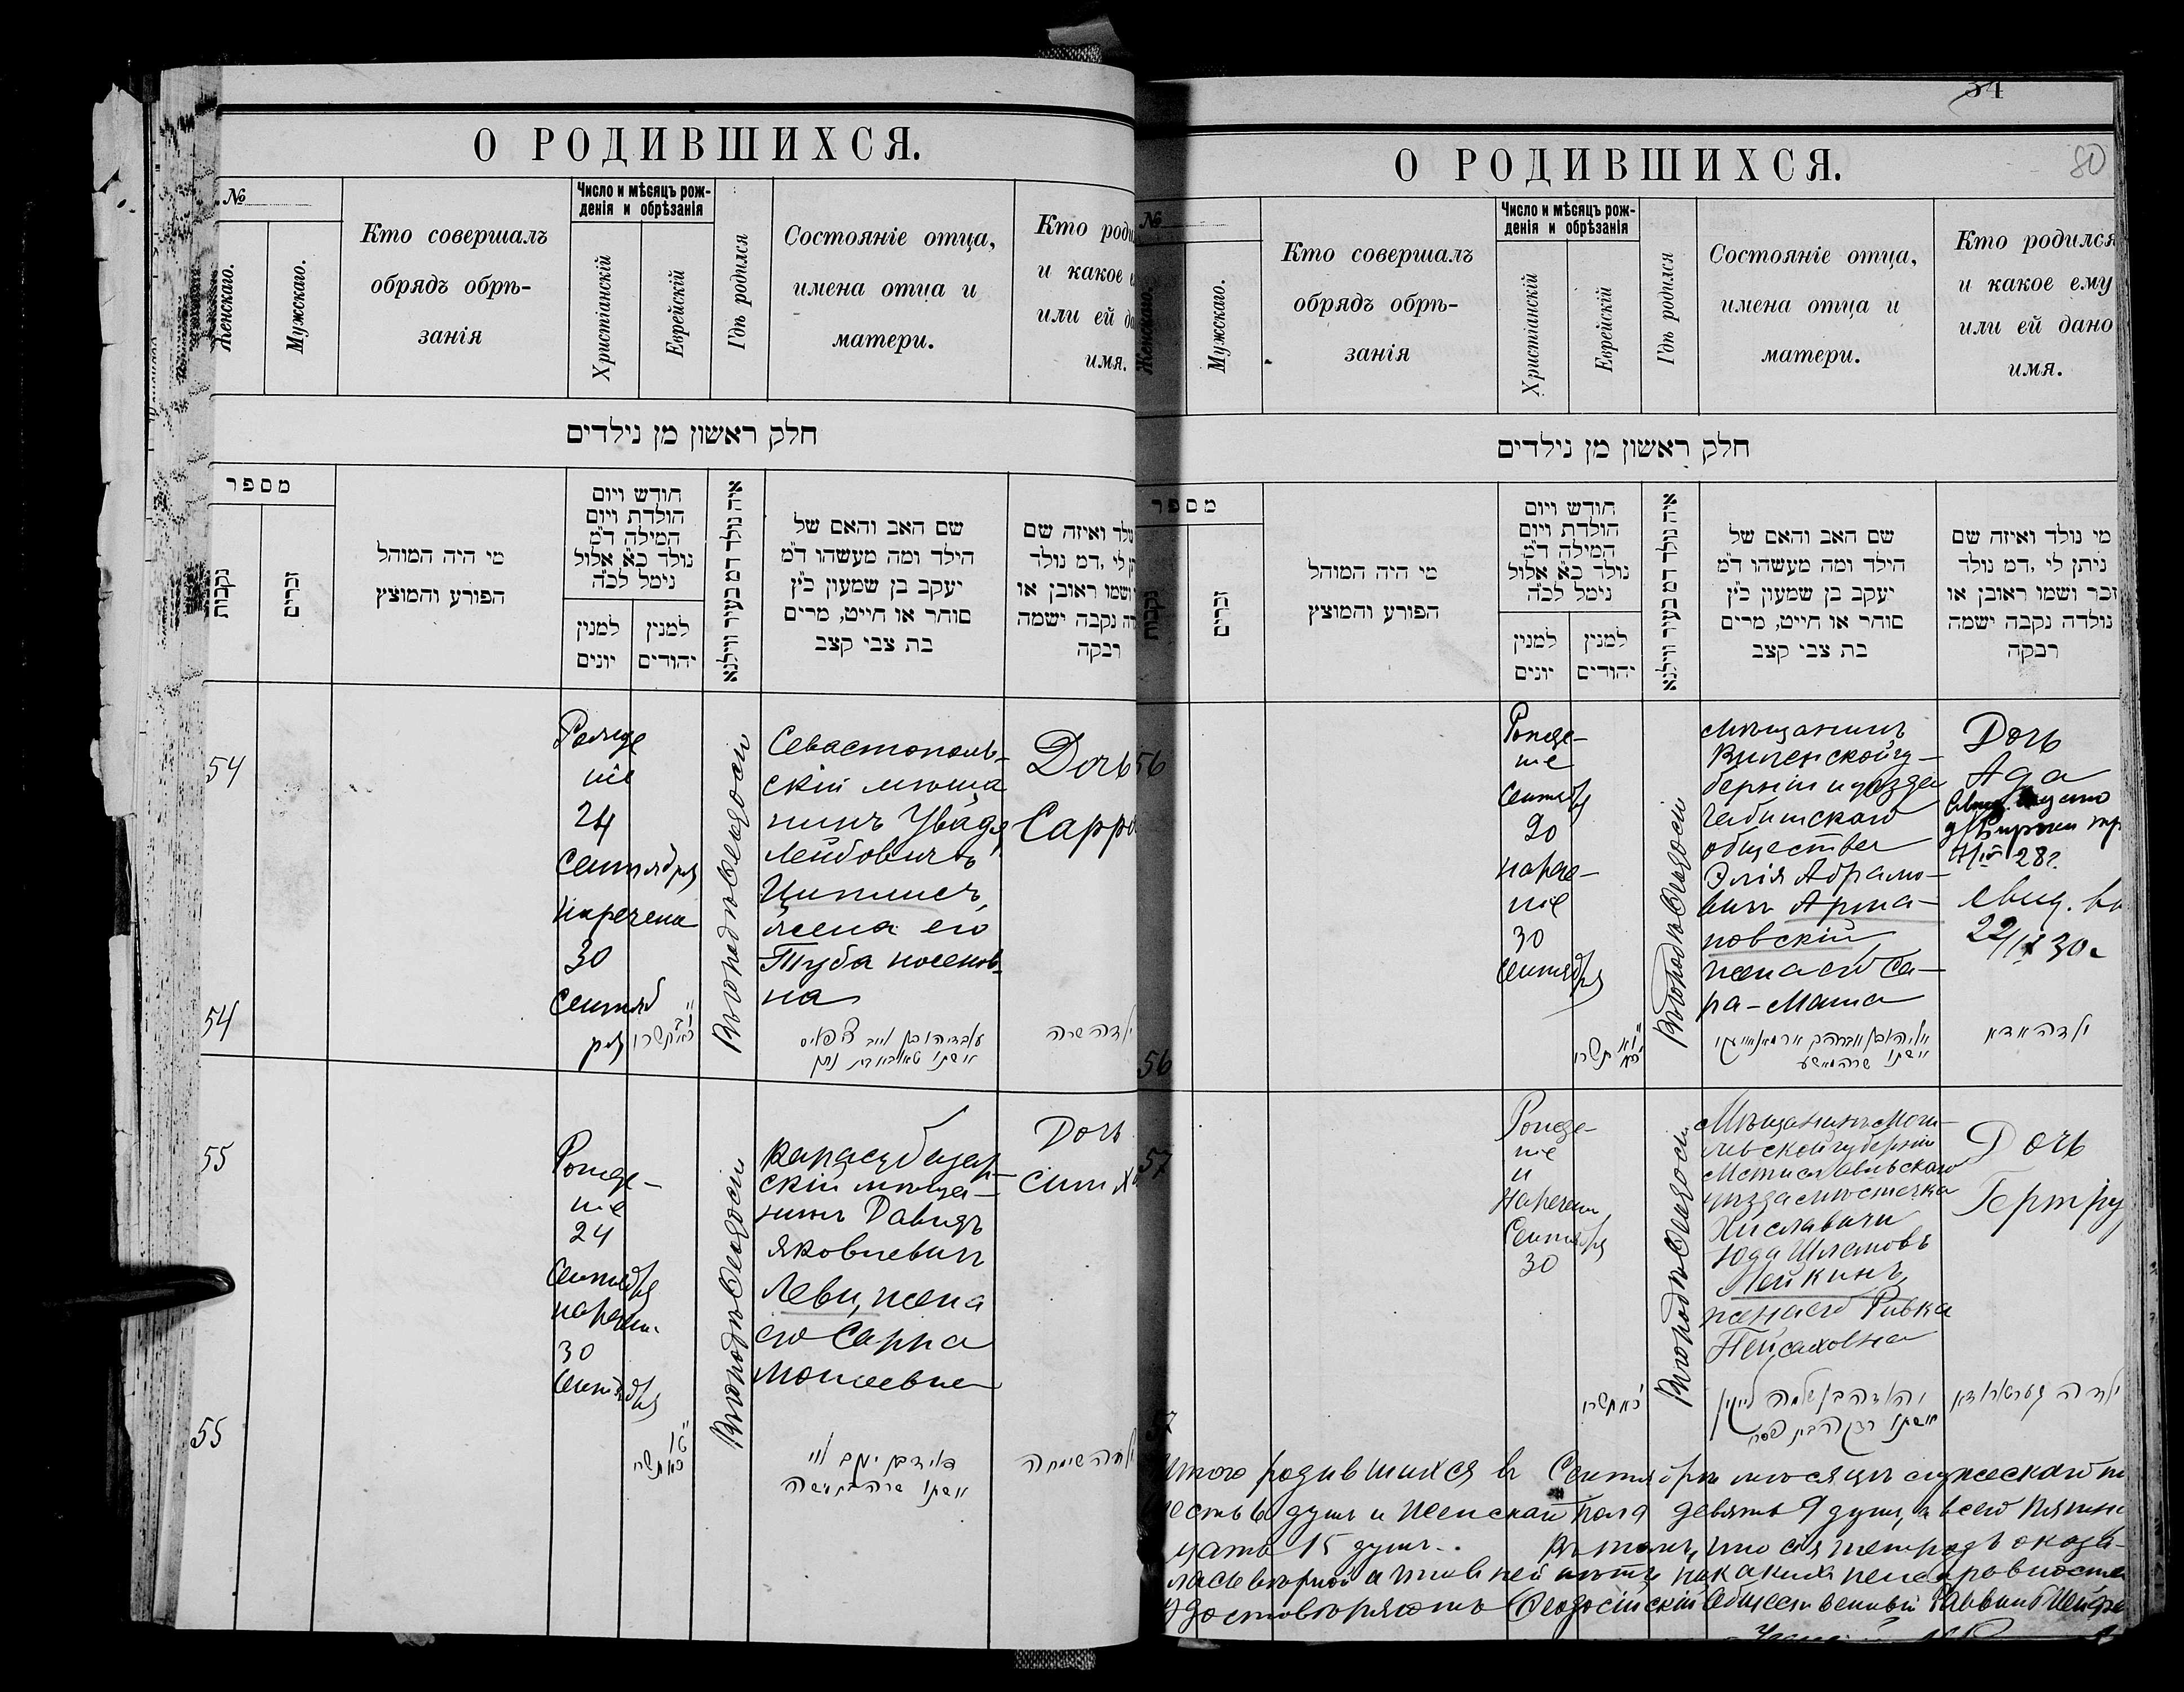 О РОДИВШИХСЯ.
№
Женскаго.
Мужскаго.
Кто совершалъ
обрядъ обрѣ-
занія
Число и мѣсяцъ рож-
денія и обрѣзанія
Христіанскій
Еврейскій
Гдѣ родился
Состояніе отца,
имена отца и
матери.
Кто роди
и какое
или ей
имя.
חלק ראשון מן נילדים
מספר
נקבות
זכרים
מי היה המוהל
הפורע והמוצץ
חודש ויום
הולדת ויום
המילה ד״מ
נולד כ״א אלול
נימל לכ״ה
למנין
יונים
למנין
יהודים
איה נולד דמ בעיר ווילנא
שם האב והאם של
הילד ומה מעשהו ד״מ
יעקב בן שמעון כ״ץ
סוחר או חייט, מרים
בת צבי קצב
ולד ואיזה שם
לי ,דמ נולד
ושמו ראובן או
נקבה ישמה
רבקה
54
Рожде
ніе
24
Сентября
Наречена
30
Сентяб
ря
כ״א תשרי
Въ городѣ Ѳеодосіи
Севастополь-
скій мѣща
нинъ
Лейбовичъ
Ципписъ,
жена его
Туба
на
Дочь
Сарра
ילדה שרה
54
55
Рожде-
ніе
24
Сентября
нареч.
30
Сентября
Въ городѣ Ѳеодосіи
Карасубазар-
скій мѣща-
нинъ Давидъ
Яковлевичъ
Леви, жена
его Сарра
Моисеевна
דוד בן יעקב לוי
אשתו שרה בת משה
Дочь
Симх
ילדה שימחה
55
34
80
О РОДИВШИХСЯ.
№
Женскаго.
Мужскаго.
Кто совершалъ
обрядъ обрѣ-
занія
Число и мѣсяцъ рож-
денія и обрѣзанія
Христіанскій
Еврейскій
Гдѣ родился
Состояніе отца,
имена отца и
матери.
Кто родился
и какое ему
или ей дано
имя.
חלק ראשון מן נילדים
מספר
נקבות
זכרים
מי היה המוהל
הפורע והמוצץ
חודש ויום
הולדת ויום
המילה ד״מ
נולד כ״א אלול
נימל לכ״ה
למנין
יונים
למנין
יהודים
איה נולד דמ בעיר ווילנא
שם האב והאם של
הילד ומה מעשהו ד״מ
יעקב בן שמעון כ״ץ
סוחר או חייט, מרים
בת צבי קצב
מי נולד ואיזה שם
ניתן לי ,דמ נולד
זכר ושמו ראובן או
נולדה נקבה ישמה
רבקה
56
Рожде-
ніе
Сентября
20
нарече-
ніе
30
Сентября
Въ городѣ Ѳеодосіи
Мѣщанинъ
Виленской гу-
берніи и уѣзда
общества
Элія Абрамо-
вичъ Арма-
новскій
жена его Са-
ра-Маша
Дочь
Ада
28г.
свид.
22/IX 30г.
ילדה אדא
56
57
Рожде-
ніе
и
Наречен.
Сентября
30
Въ городѣ Ѳеодосіи
Мѣщанинъ Моги-
левской губерніи
Мстиславльскаго
уѣзда мѣстечка
Хиславичи
Юда Шлемовъ
Лейкинъ,
жена его Ривка
Пейсаховна
יהודה בן שלמה לייקין
אשתו רבקה בת פסח
Дочь
Гертру
57
Итого родившихся въ Сентябрѣ мѣсяцѣ мужескаго по
шесть 6 душъ и женскаго пола девять 9 душъ, а всего пятна
цать 15 душъ. Въ томъ, что сія тетрадь оказа-
лась вѣрной и что въ ней нѣтъ никакихъ неисправностей
удостовѣряетъ Ѳеодосійскій Общественный Раввинъ